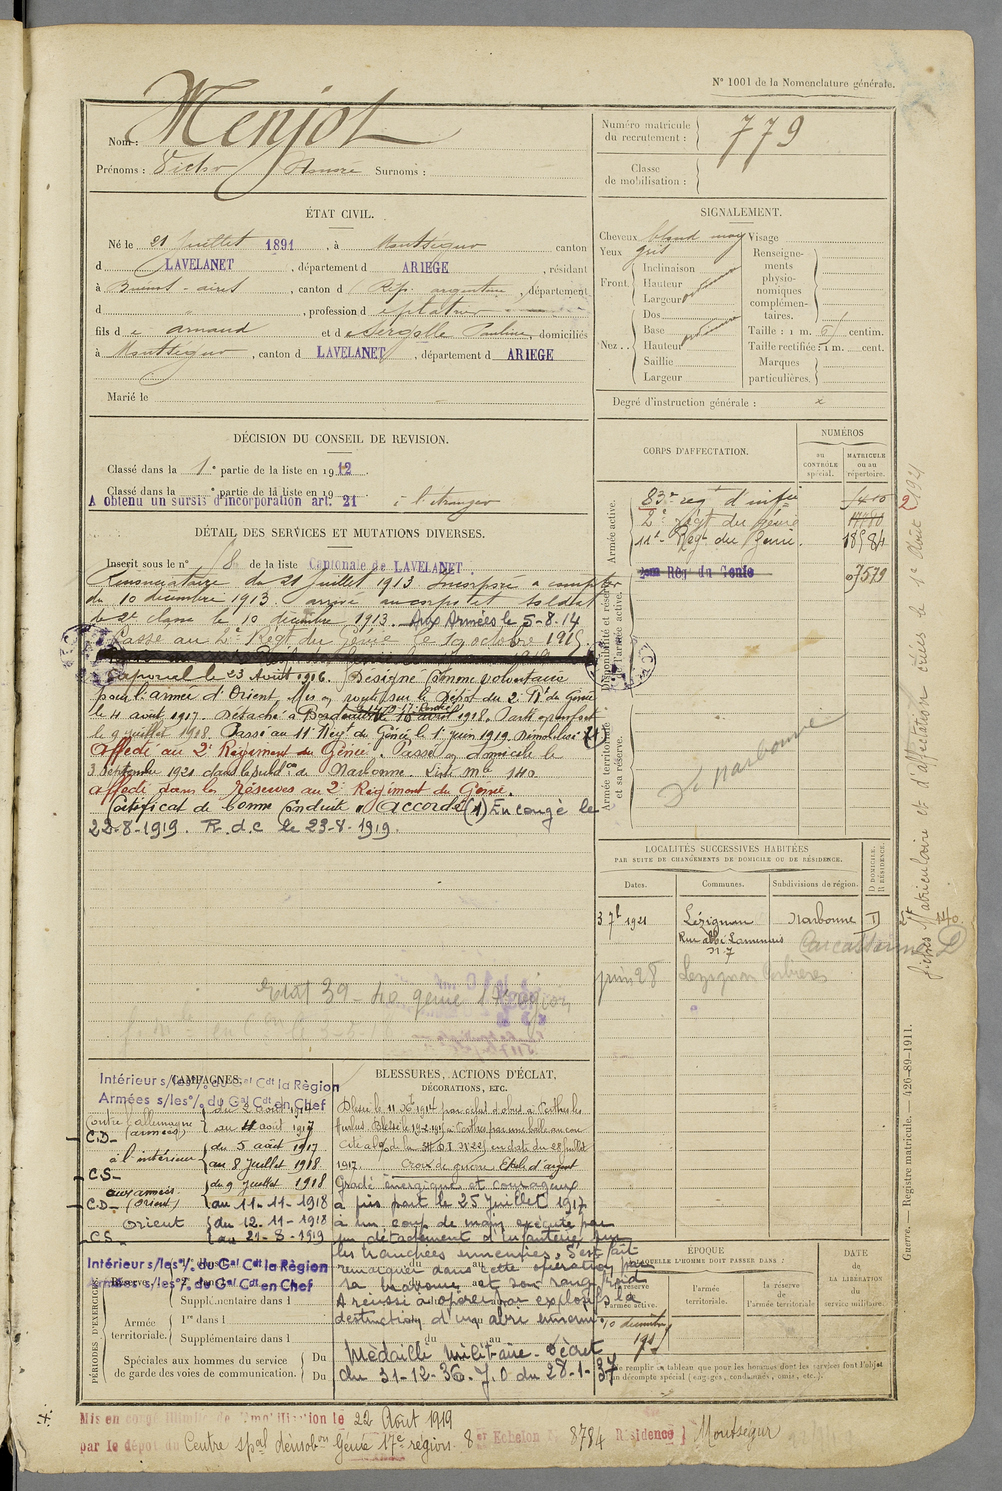 N° 1001 de la Nomenclature générale.
Nom : Menjot
Prénoms : Victor Honoré Surnoms :
Numéro matricule du recrutement : 779
Classe de mobilisation :
ÉTAT CIVIL.
Né le 21 Juillet 1891, à Montségur canton
d LAVELANET, département d ARIEGE, résidant
à Buénos-aires, canton d Rép. argentine, département
d , profession d
fils d e arnaud et d e Sergolle Pauline, domiciliés
à Montségur, canton d LAVELANET, département d ARIEGE
Marié le
SIGNALEMENT.
Cheveux blond moy Visage
Yeux gris
Front.
Inclinaison
Hauteur
Largeur
Nez..
Dos
Base
Hauteur
Saillie
Largeur
Renseignements physionomiques complémentaires.
Taille : 1 m. 61 centim.
Taille rectifiée : 1 m. cent.
Marques particulières.
Degré d'instruction générale : x
DÉCISION DU CONSEIL DE REVISION.
Classé dans la 1e partie de la liste en 1912.
Classé dans la e partie de la liste en 19
A obtenu un sursis d'incorporation art. 21 à l'étranger
DÉTAIL DES SERVICES ET MUTATIONS DIVERSES.
Inscrit sous le n° de la liste Cantonale de LAVELANET.
Renonciataire du 21 Juillet 1913. Incorporé à compter
du 10 décembre 1913. arrivé au corps et soldat
de 2e classe le 10 décembre 1913. Aux Armées le 5-8-14
Passé au 2e Régt du génie le 19 octobre 1915.
Caporal le 23 Août 1916. Désigné comme volontaire
pour l'armée d'Orient. Mis en route sur le Dépôt du 2e Rt de Génie
le 4 août 1917. Détaché à Bordeaux le 16 avril 1918. Parti en renfort
le 9 juillet 1918. Passé au 11e Régt du Génie le 1er juin 1919. Démobilisé (1)
Affecté au 2e Régiment du Génie. Passé en domicile le
3 Septembre 1921 dans la subdon de Narbonne. Liste Mle 140
Affecté dans les Réserves au 2e Régiment du Génie.
Certificat de bonne conduite "Accordé" (1) En congé le
22-8-1919. R.d.c le 23-8-1919.
CORPS D'AFFECTATION.
NUMÉROS
au CONTRÔLE spécial.
MATRICULE ou au répertoire.
Armée active.
83e régt d'infie
2e Régt du Génie
11e Régt du Génie. 18584
2ème Rég. du Génie 07579
Disponibilité et réserve de l'armée active.
Armée territoriale et sa réserve.
De Narbonne
LOCALITÉS SUCCESSIVES HABITÉES
PAR SUITE DE CHANGEMENTS DE DOMICILE OU DE RÉSIDENCE.
Dates. Communes. Subdivisions de région. D DOMICILE. R RÉSIDENCE.
3 7b 1921 Lézignan Narbonne D
Rue abbé Lamennais n. 7 Carcassonne D
juin 28 Lezignan Corbières
CAMPAGNES.
Intérieur s/les o/. du Gal Cdt la Région
Armées s/les o/. du Gal Cdt en Chef
Contre l'allemagne { du 2 août 1914
C.D- (armées) au 4 août 1917
à l'intérieur { du 5 août 1917
C.S- au 8 Juillet 1918
aux armées { du 9 Juillet 1918
C.D- (orient) au 11-11-1918
Orient { du 12-11-1918
C.S- au 21-8-1919
Intérieur s/les o/. du Gal Cdt la Région
Armées s/les o/. du Gal Cdt en Chef
BLESSURES, ACTIONS D'ÉCLAT,
DÉCORATIONS, ETC.
Blessé le 11 1914 par éclat d'obus à Perthes les
Hurlus. Blessé le 19-2-1915 à Perthes par une balle au cou
1917. Croix de guerre. Etoile d'argent
Gradé énergique et courageux
a pris part le 25 Juillet 1917
à un coup de main exécuté par
un détachement d'Infanterie sur
les tranchées ennemies, s'est fait
remarquer dans cette opération par
sa bravoure et son sang froid
A réussi à opérer par explosifs la
destruction d'un abri ennemi.
Médaille militaire - Décret
du 31-12-36. J.O du 28-1-37
PÉRIODES D'EXERCICES
Supplémentaire dans l
Armée territoriale.
1re dans l
Supplémentaire dans l
Spéciales aux hommes du service de garde des voies de communication. Du au
Du
ÉPOQUE
À LAQUELLE L'HOMME DOIT PASSER DANS :
la réserve de l'armée active.
l'armée territoriale.
la réserve de l'armée territoriale
DATE DE LA LIBÉRATION du service militaire.
10 décembre
Ne remplir ce tableau que pour les hommes dont les services font l'objet d'un décompte spécial (engagés, condamnés, omis, etc.).
Mis en congé illimité de démobilisation le 22 Août 1919
par le dépôt du Centre spal démobon Génie 17e région. 8er Echelon N° 8784 Résidence Montségur
Guerre. — Registre matricule. — 426-89-1911.